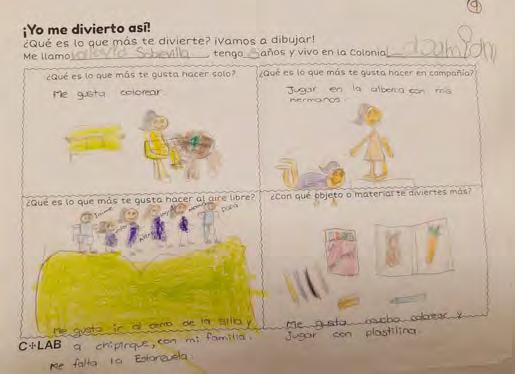 9
¡Yo me divierto así!
¿Qué es lo que más te divierte? ¡Vamos a dibujar!
Me llamo Sobevilla tengo años y vivo en la Colonia
¿Qué es lo que más te gusta hacer solo?
Me gusta colorear.
¿Qué es lo que más te gusta hacer en compañía?
Jugar en la alberca con mis
hermanos.
¿Qué es lo que más te gusta hacer al aire libre?
papá
¿Con qué objeto o material te diviertes más?
Me gusta ir al cerro de la silla y
C+LAB a chipinque, con mi familia.
Me falta la Estanzuela.
Me gusta mucho colorear y
Jugar con plastilina.